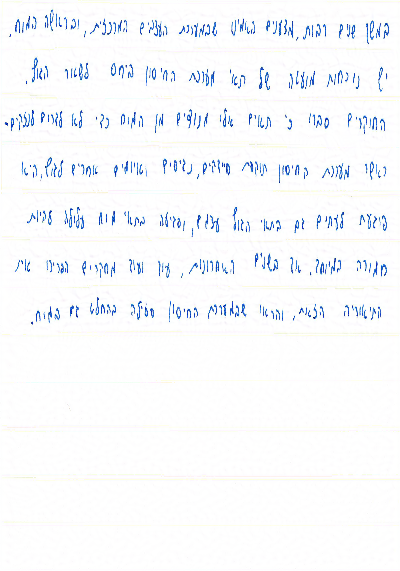 במשך שנים רבות, מדענים האמינו שבמערכת העצבים המרכזית, ובראשה המוח,
יש נוכחות מועטה של תאי מערכת החיסון ביחס לשאר הגוף.
החוקרים סברו כי תאים אלו מנועים מן המוח כדי לא לגרום לנזקים-
כאשר מערכת החיסון תוקפת חיידקים, נגיפים ואיומים אחרים לגוף, היא
פוגעת לעתים גם בתאי הגוף עצמם, ופגיעה בתאי מוח עלולה להיות
חמורה במיוחד. אך בשנים האחרונות, עוד ועוד מחקרים הפריכו את
התיאוריה הזאת, והראו שבמערכת החיסון פעילה בהחלט גם במוח.